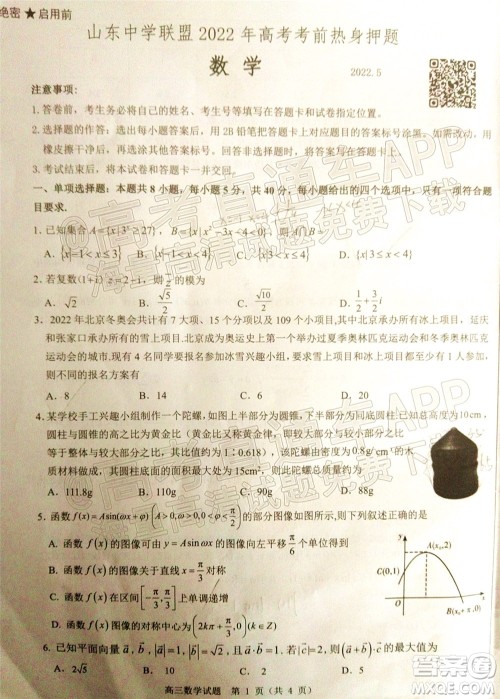 绝密★启用前
山东中学联盟2022年高考考前热身押题
数学
2022.5
注意事项：
1.答卷前，考生务必将自己的姓名、考生号等填写在答题卡和试卷指定位置。
2.选择题的作答：选出每小题答案后，用2B铅笔把答题卡上对应题目的答案标号涂黑。如需改动，用
橡皮擦干净后，再选涂其他答案标号。回答非选择题时，将答案写在答题卡上，写在本试卷上无效。
3.考试结束后，将本试卷和答题卡一并交回。
一、单项选择题：本题共8小题，每小题5分，共40分，每小题给出的四个选项中，只有一项符合题
目要求.
1.已知集合A={x|3^x≥27}，B={x|x²-3x-4<0}，则A∩B=
A.{x|-1<x≤3} B.{x|-1<x<4} C.{x|3≤x<4} D.{x|x<4}
2.若复数(1-i)z=2-i，则z的模为
A.√2 B.√5/2 C.√10/2 D.√3
3.2022年北京冬奥会共计有7大项、15个分项以及109个小项目，其中北京承办所有的冰上项目，延庆
和张家口承办所有的雪上项目，北京成为奥运史上第一个举办过夏季奥林匹克运动会和冬季奥林匹克
运动会的城市.现有4人参加冰雪兴趣小组，要求雪上项目和冰上项目都至少有1人参加，
则不同的报名方案有
A.8 B.14 C.18 D.20
4.某学校手工兴趣小组制作一个陀螺，如图上半部分为圆锥，下半部分为圆柱，总高度为10cm，
圆柱与圆锥的高之比为黄金比（黄金比又称黄金律，即较大部分与
较小部分之比等于整体与较大部分之比，其比值约为1:0.618），该陀螺由密度为0.8g/c
的木质材料做成，其圆柱底面的面积最大处为15cm²，则此陀螺总质量最接近
A.111.8g B.100g C.90g D.60g
5.函数f(x)=Asin(ωx+φ)(A>0,ω>0,0<φ<π/2)的部分图像如图所示，则下列叙述正确的是
A(x₁,2)
C(0,1)
B(x₁+π,0)
A.函数f(x)的图像可由y=Asinωx的图像向左平移π/6个单位得到
B.函数f(x)的图像关于直线x=π/3对称
C.函数f(x)在区间[-π/3,π/3]上单调递增
D.函数f(x)的图像的对称中心为(2kπ+π/3,0)(k∈Z)
6.已知平面向量a，b，|a|=1，|b|=2，且a·b=0，若|c|=2，则c·(a+b)的最大值为
A.2√5 B.10 C.2 D.5
高三数学试题 第1页（共4页）
高考直通车APP
海量高清试题免费下载